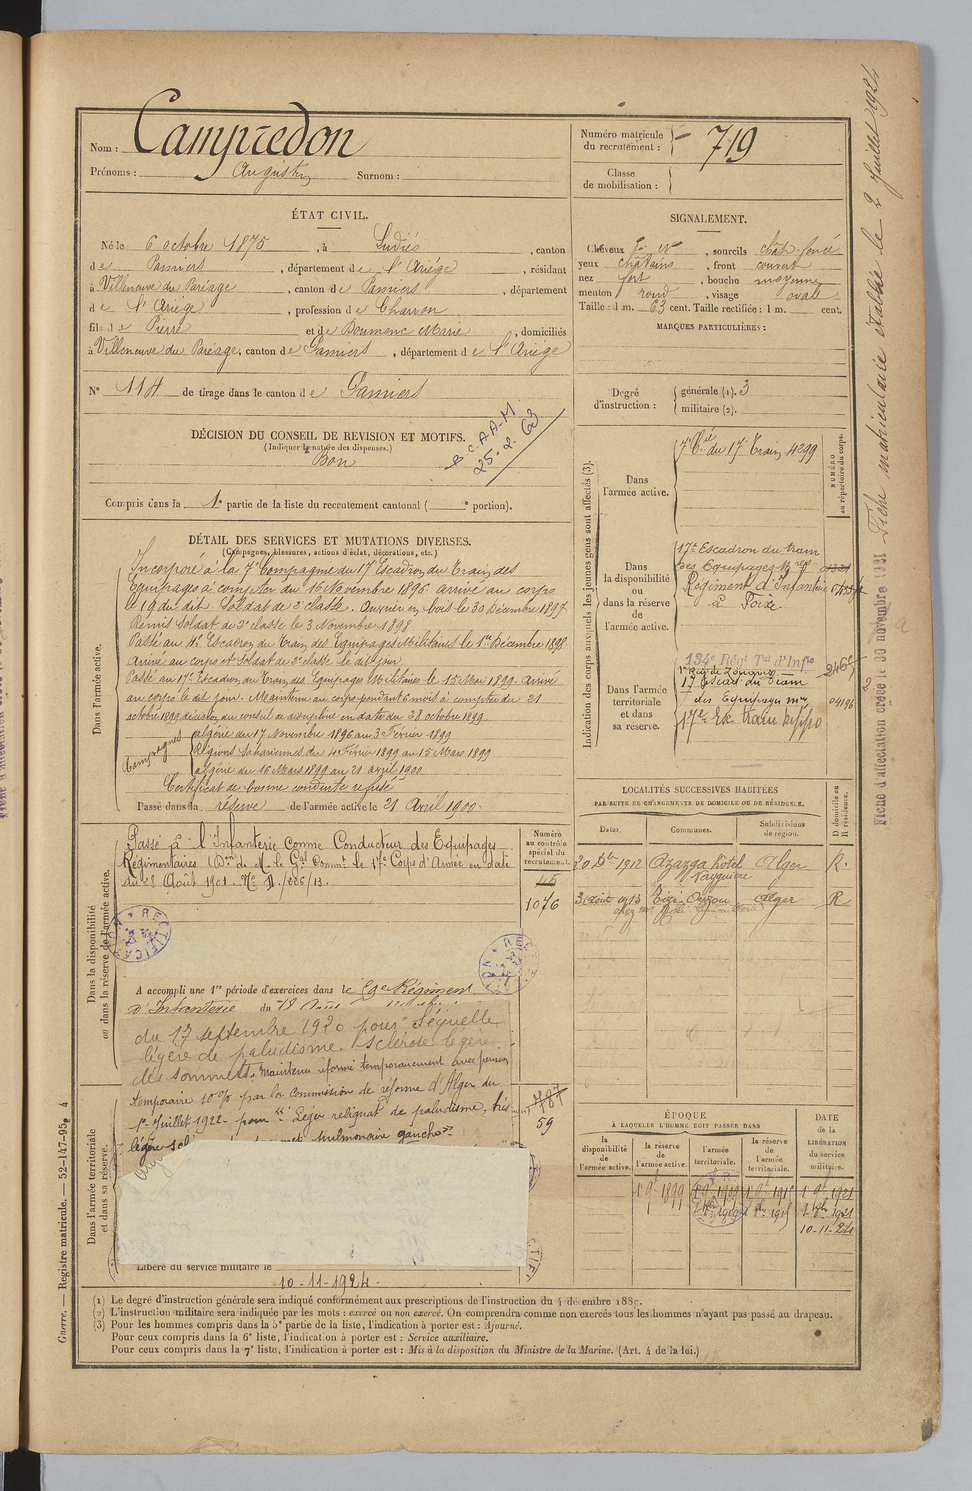 Nom : Campredon
Prénoms : Augustin Surnom :
Numéro matricule du recrutement : 719
Classe de mobilisation :
ÉTAT CIVIL.
Né le 6 octobre 1875, à Ludiès, canton
de Pamiers, département de l'Ariége, résidant
à Villeneuve du Paréage, canton de Pamiers, département
de l'Ariége, profession de Charron
fils de Pierre et de Boumenc Marie, domiciliés
à Villeneuve du Paréage, canton de Pamiers, département de l'Ariége
N° 114 de tirage dans le canton de Pamiers
DÉCISION DU CONSEIL DE REVISION ET MOTIFS.
(Indiquer la nature des dispenses.)
Bon
25-2-63
Compris dans la 1e partie de la liste du recrutement cantonal ( e portion).
SIGNALEMENT.
Cheveux , sourcils chât. foncé
yeux châtains, front couvert
nez fort, bouche moyenne
menton rond, visage ovale
Taille : 1 m. 63 cent. Taille rectifiée : 1 m. cent.
MARQUES PARTICULIÈRES :
Degré d'instruction : générale (1). 3
militaire (2).
DÉTAIL DES SERVICES ET MUTATIONS DIVERSES.
(Campagnes, blessures, actions d'éclat, décorations, etc.)
Dans l'armée active.
Incorporé à la 7e Compagnie du 17e Escadron du Train des
Equipages à compter du 16 Novembre 1896 arrivé au corps
le 19 du dit. Soldat de 2e classe. Ouvrier en bois le 30 Décembre 1897.
Remis Soldat de 2e classe le 3 Novembre 1898.
Passé au 4e Escadron du Train des Equipages Militaires le 1er Décembre 1898.
Arrivé au corps et Soldat de 2e classe le dit jour.
Passé au 17e Escadron du Train des Equipages Militaires le 15 Mai 1899. Arrivé
au corps le dit jour. Maintenu au corps pendant 6 mois à compter du 21
octobre 1899 décision du conseil de discipline en date du 28 octobre 1899.
Campagnes
algérie du 17 Novembre 1896 au 3 Février 1899
Régions Sahariennes du 4 Février 1899 au 15 Mars 1899
algérie du 16 Mars 1899 au 21 avril 1900
Certificat de bonne conduite refusé
Passé dans la réserve de l'armée active le 21 Avril 1900.
Indication des corps auxquels les jeunes gens sont affectés (3).
NUMÉRO au répertoire du corps.
Dans l'armée active.
7e Cie du 17e Train 4299
Dans la disponibilité ou dans la réserve de l'armée active.
17e Escadron du train
des Equipages
Régiment d'Infanterie
à Foix
Dans l'armée territoriale et dans sa réserve.
134e Régt Tal d'Infie
17e Escad du Train
des Equipages mres 04196
17e Esc. train hippo
Dans la disponibilité ou dans la réserve de l'armée active.
Passé à l'Infanterie comme Conducteur des Equipages
Régimentaires (Don de M. le Gal Commt. le 17e Corps d'Armée en date
du 28 Août 1901 - No D./226/13.
Numéro au contrôle spécial du recrutement.
45
1076
A accompli une 1re période d'exercices dans le 59e Régiment
d'Infanterie du
du 17 septembre 1920 pour "Séquelle
légère de paludisme. Sclérose légère
des sommets. Maintenu réformé temporairement avec pension
temporaire 10% par la Commission de réforme d'Alger du
1er Juillet 1922 pour "Leger reliquat de paludisme, très
légère pulmonaire gauche".
787
59
Dans l'armée territoriale et dans sa réserve.
Libéré du service militaire le
10-11-1924.
LOCALITÉS SUCCESSIVES HABITÉES
PAR SUITE DE CHANGEMENTS DE DOMICILE OU DE RÉSIDENCE.
Dates. Communes. Subdivisions de région. D domicile ou R résidence.
20 Dbre 1912 Azazga hôtel Alger R.
3 Août 1913 Tizi-Ouzou Alger R
ÉPOQUE
À LAQUELLE L'HOMME DOIT PASSER DANS
la disponibilité de l'armée active. la réserve de l'armée active. l'armée territoriale. la réserve de l'armée territoriale.
DATE de la LIBÉRATION du service militaire.
1 9bre 1899
1 9bre 1921
10-11-24
(1) Le degré d'instruction générale sera indiqué conformément aux prescriptions de l'instruction du 4 décembre 1889.
(2) L'instruction militaire sera indiquée par les mots : exercé ou non exercé. On comprendra comme non exercés tous les hommes n'ayant pas passé au drapeau.
(3) Pour les hommes compris dans la 5e partie de la liste, l'indication à porter est : Ajourné.
Pour ceux compris dans la 6e liste, l'indication à porter est : Service auxiliaire.
Pour ceux compris dans la 7e liste, l'indication à porter est : Mis à la disposition du Ministre de la Marine. (Art. 4 de la loi.)
Guerre. — Registre matricule. — 52-147-95. 4
Fiche d'affectation créée le 30 novembre 1921
Fiche matriculaire établie le 2 Juillet 1924